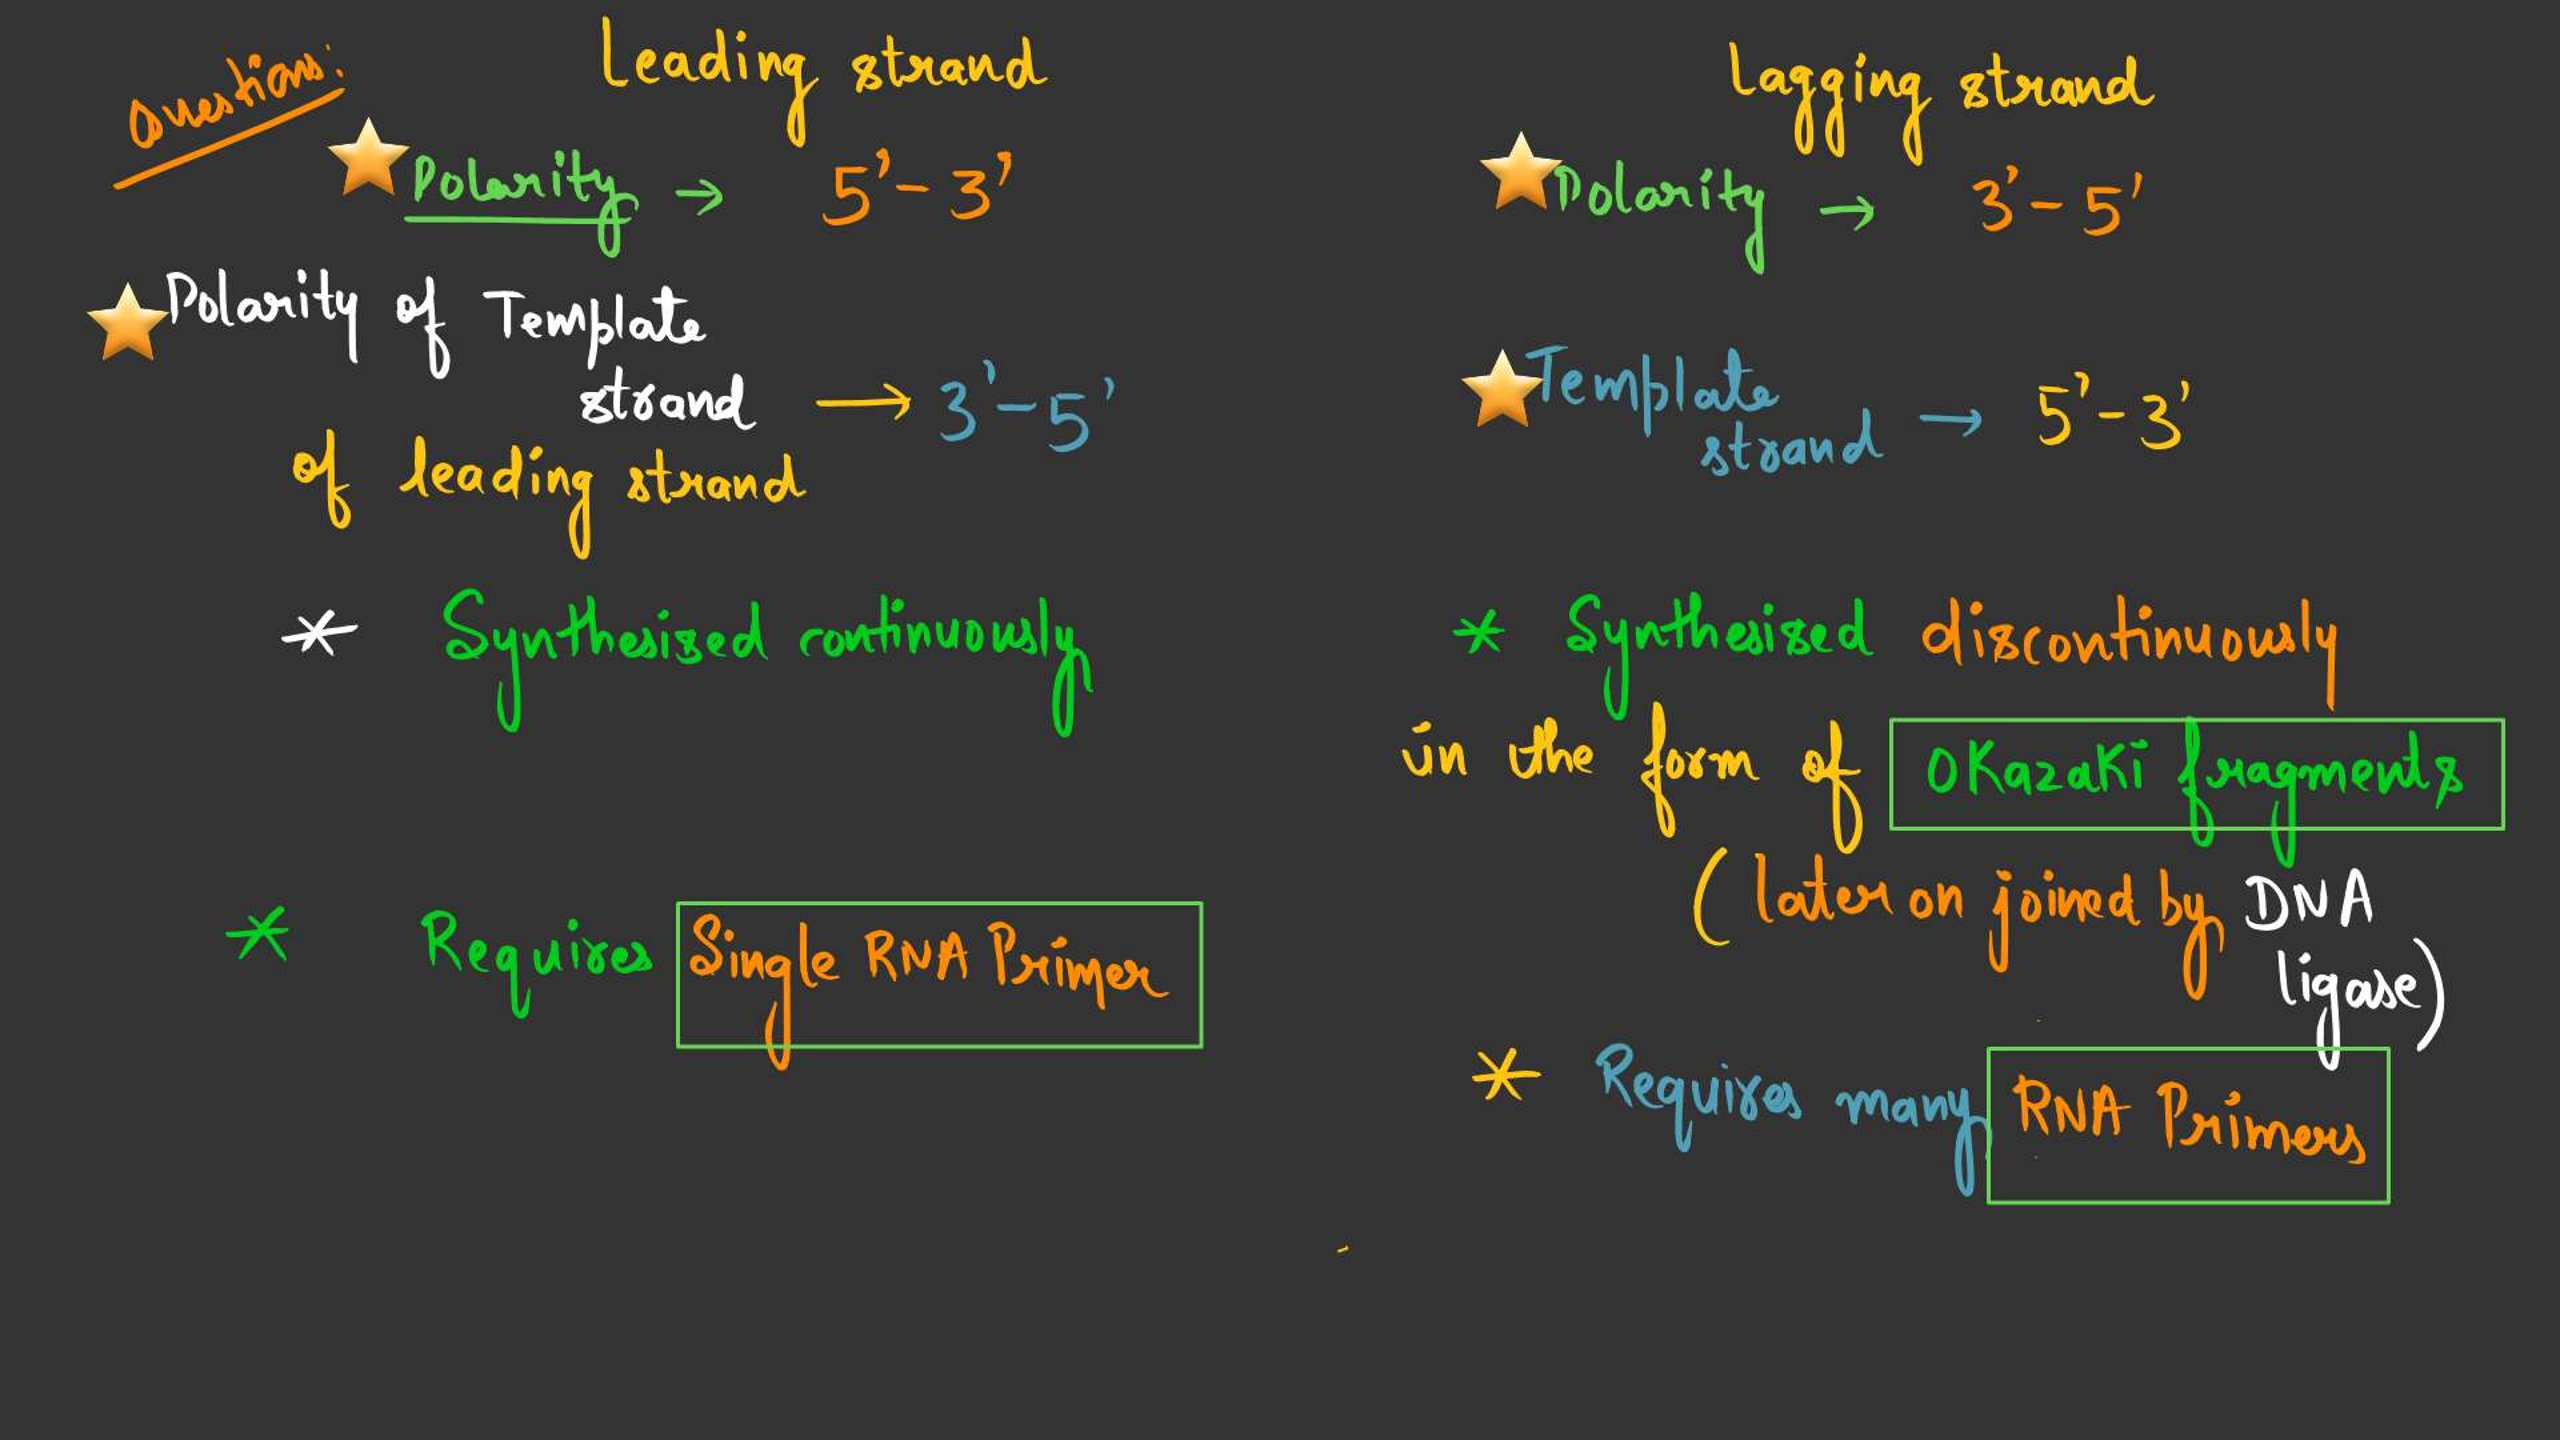 Questions:
Leading strand
Polarity → 5'-3'
Polarity of Template
strand → 3'-5'
of leading strand
* Synthesized continuously
* Requires Single RNA Primer
Lagging strand
Polarity → 3'-5'
Template
strand → 5'-3'
* Synthesized discontinuously
in the form of Okazaki fragments
(later on joined by DNA
ligase)
* Requires many RNA Primers